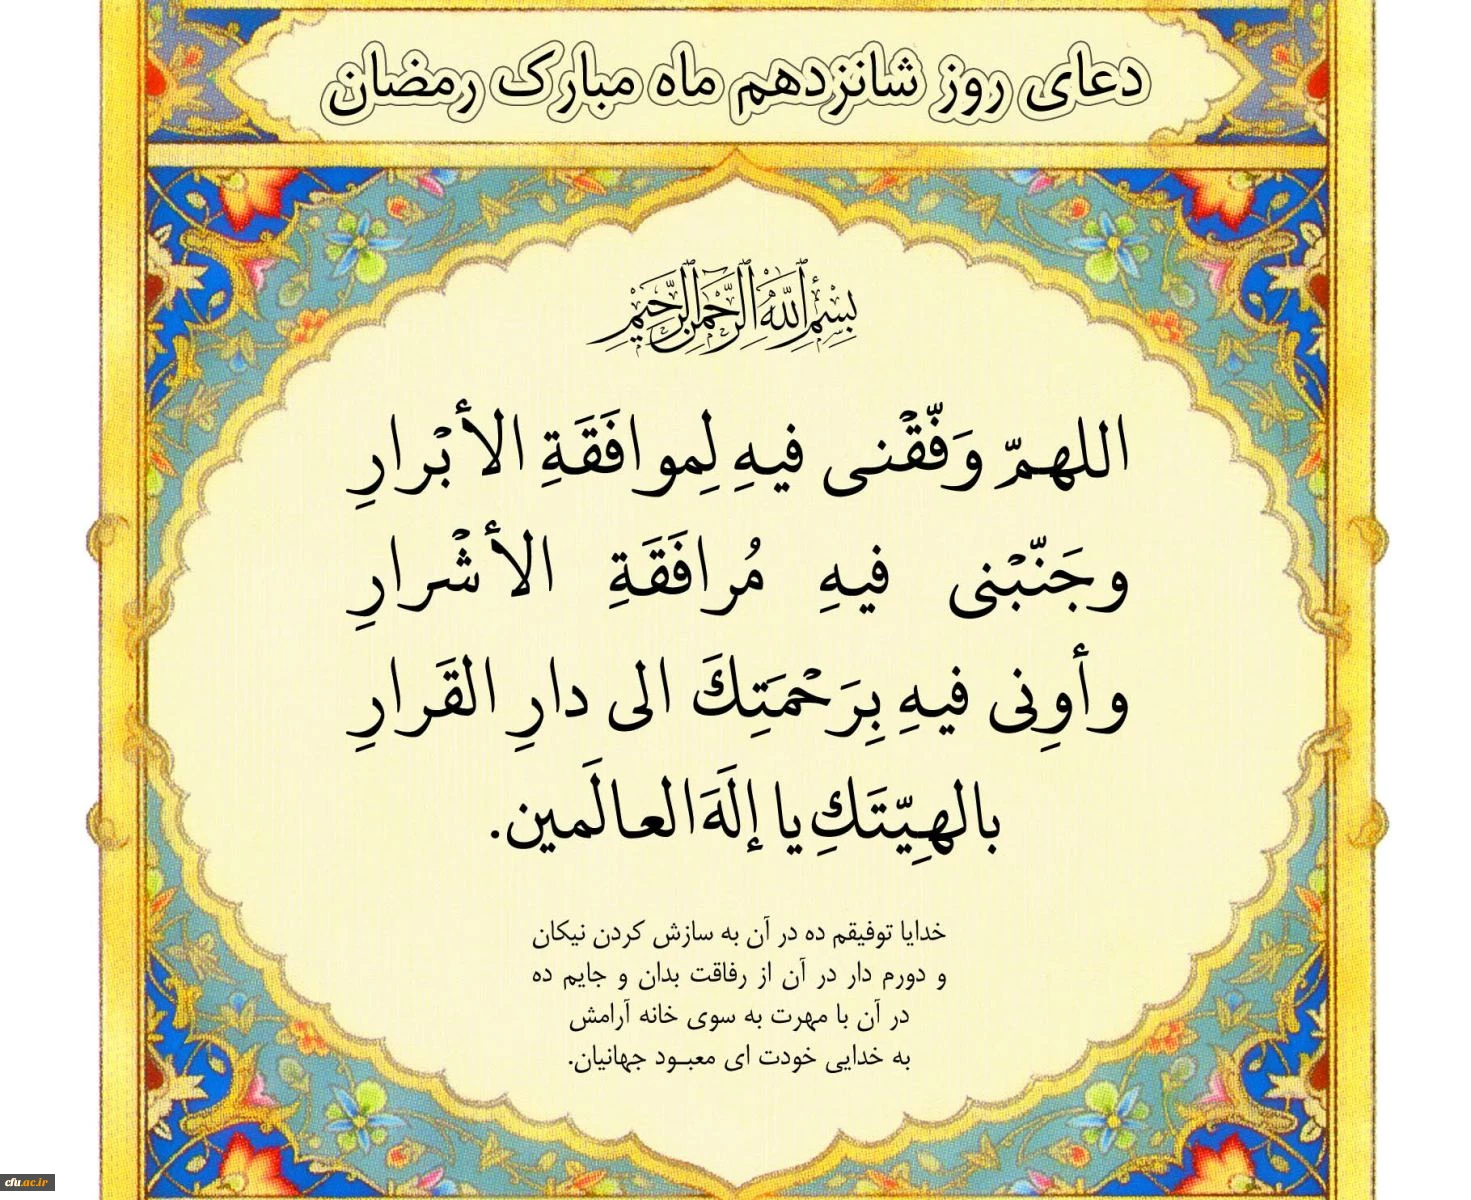 دعای روز شانزدهم ماه مبارک رمضان
بِسْمِ اللَّهِ الرَّحْمنِ الرَّحِيمِ
اللهمّ وَفّقْنی فیهِ لِموافَقَةِ الأبْرارِ
وجَنّبْنی فیهِ مُرافَقَةِ الأشْرارِ
وأوِنی فیهِ بِرَحْمَتِكَ الی دارِ القَرارِ
بالهِیّتَكِ یا إلَهَ العالَمین.
خدایا توفیقم ده در آن به سازش کردن نیکان
و دورم دار در آن از رفاقت بدان و جایم ده
در آن با مهرت به سوی خانه آرامش
به خدایی خودت ای معبود جهانیان.
cfu.ac.ir